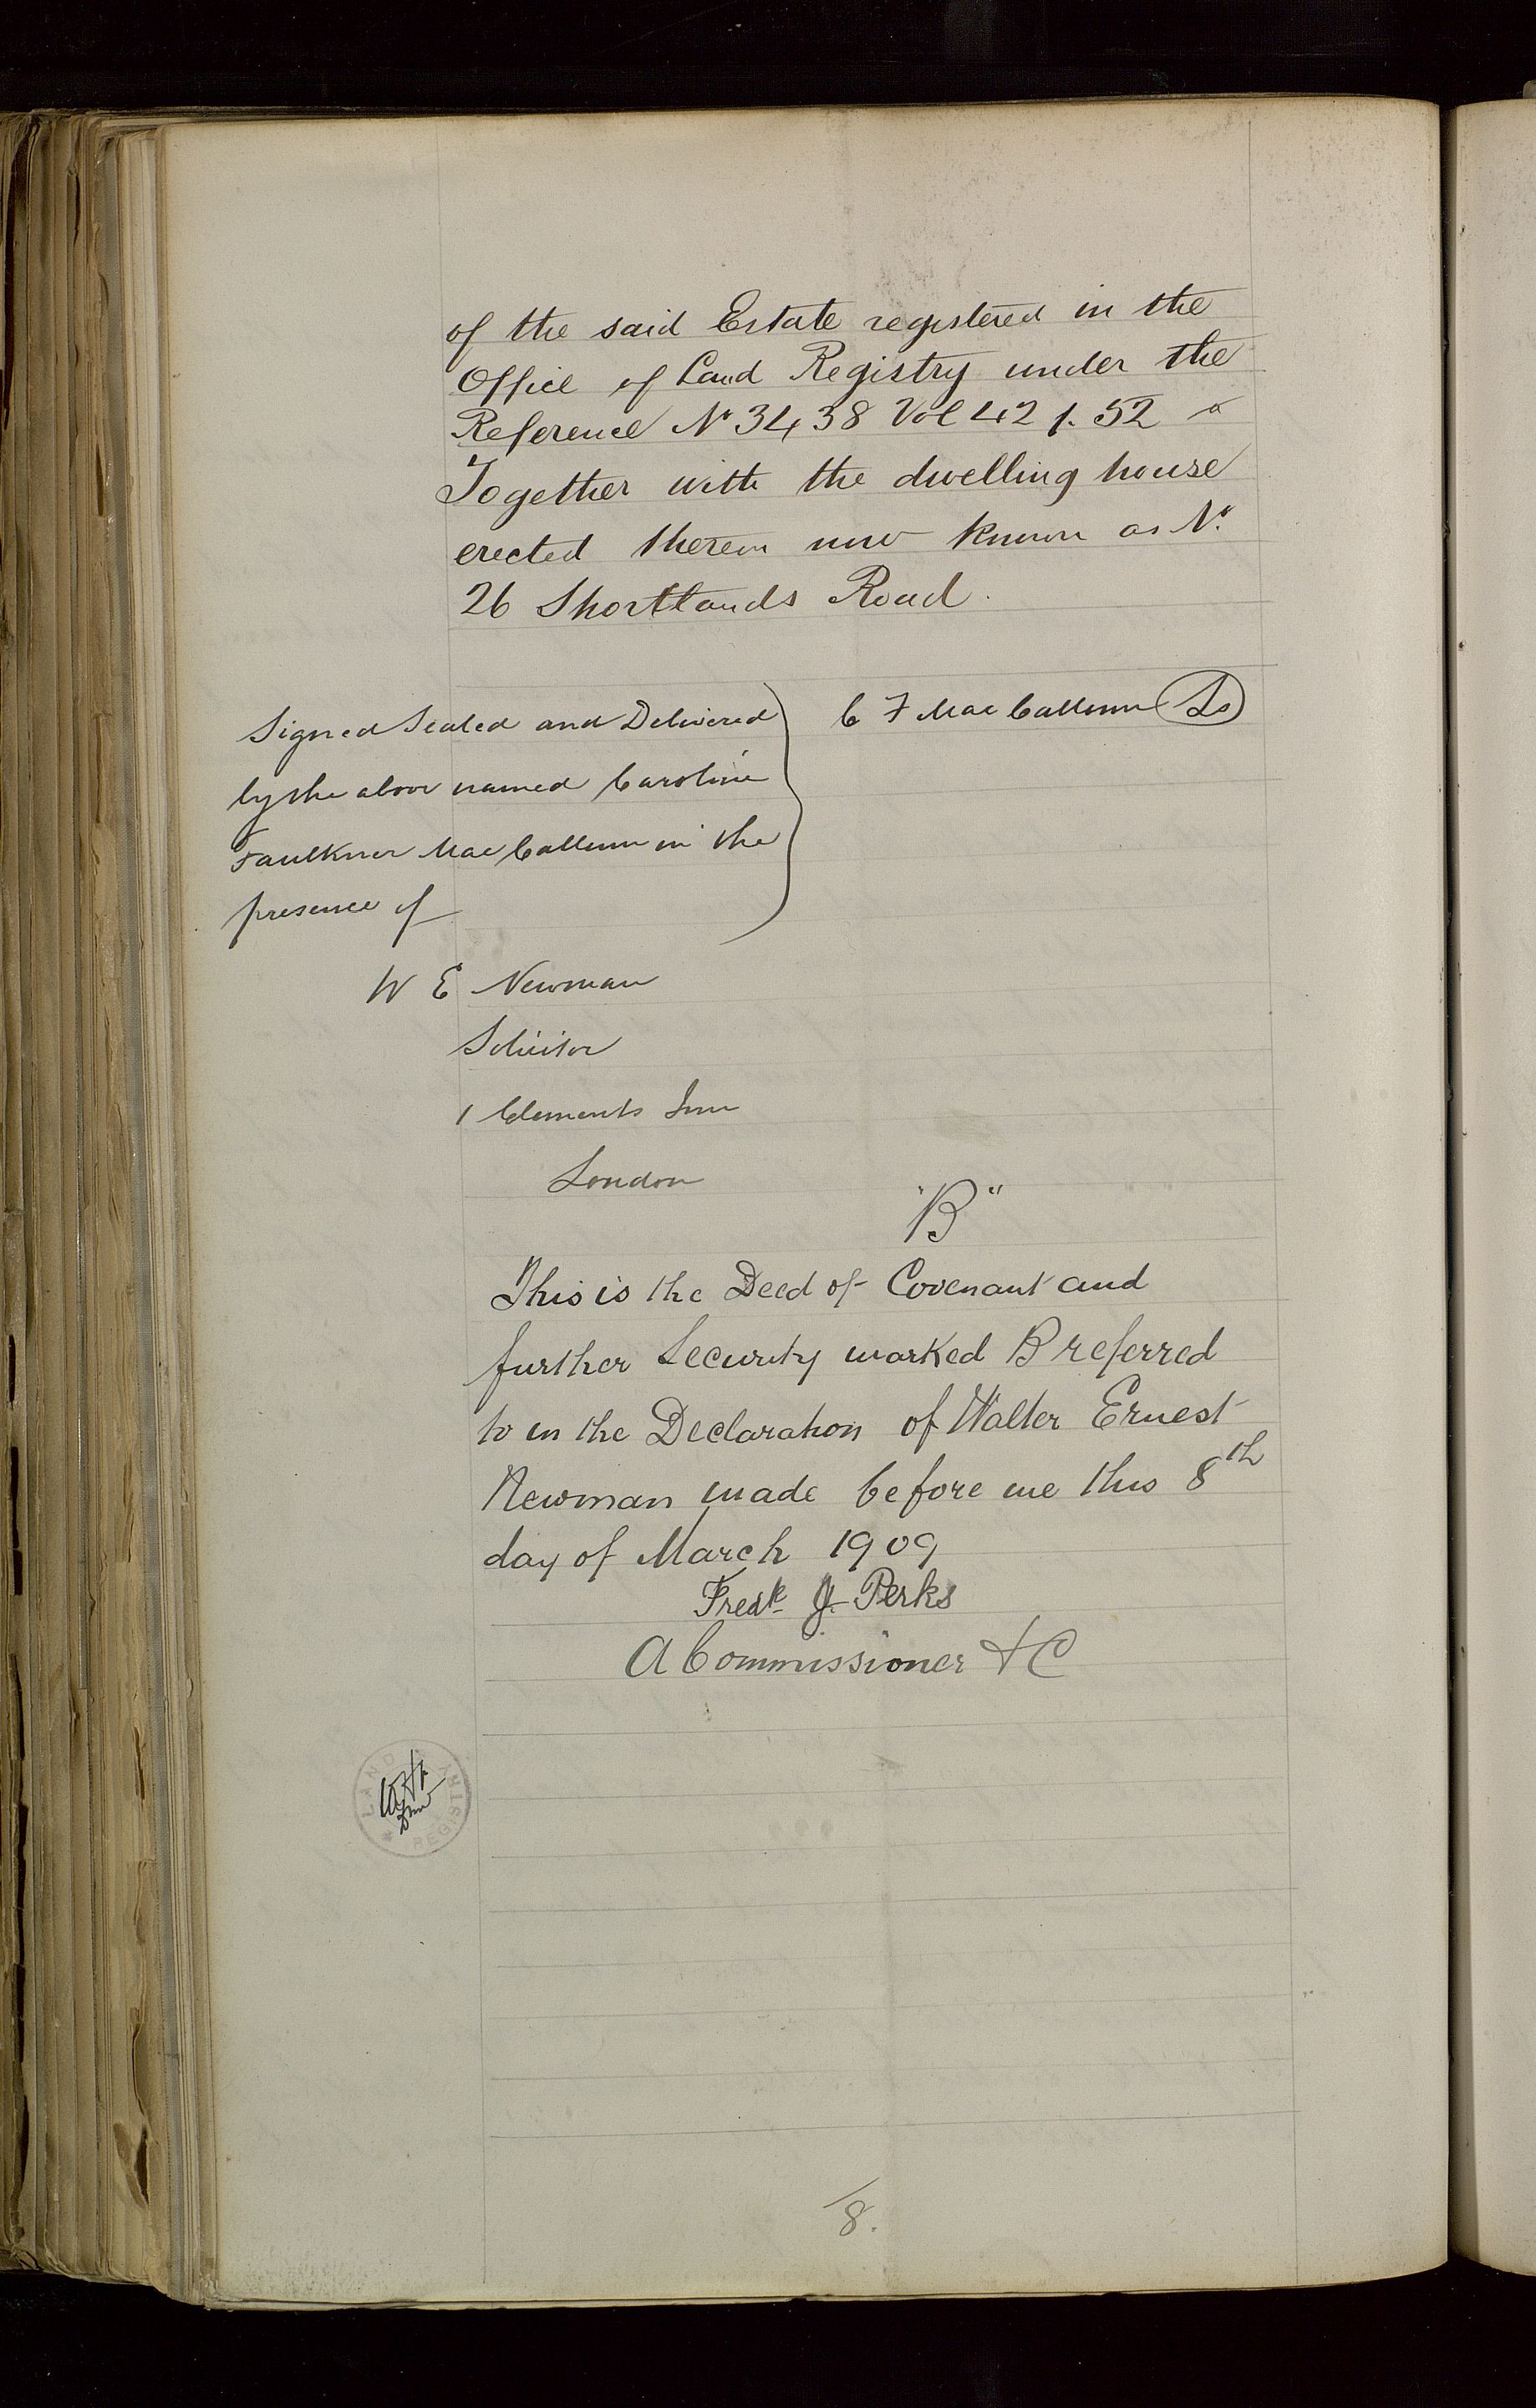 of the said Estate registered in the
Office of Land Registry under the
Reference No 3438 Vol 42 p. 52
Together with the dwelling house
erected thereon now known as No.
26 Shortlands Road.
Signed Sealed and Delivered
by the above named Caroline
Faulkner MacCallum in the
presence of
C F MacCallum LS
W E Newman
Solicitor
1 Clements Inn
London
"B"
This is the Deed of Covenant and
further Security marked B referred
to in the Declaration of Walter Ernest
Newman made before me this 8th
day of March 1909
Fredk J. Perks
A Commissioner &C
LAND REGISTRY
8.